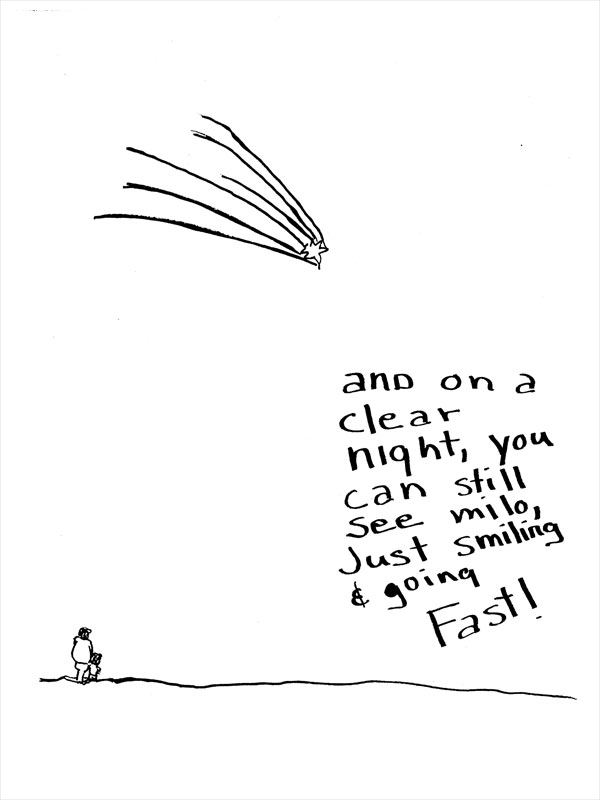 and on a
clear
night, you
can still
see milo,
Just smiling
& going
Fast!